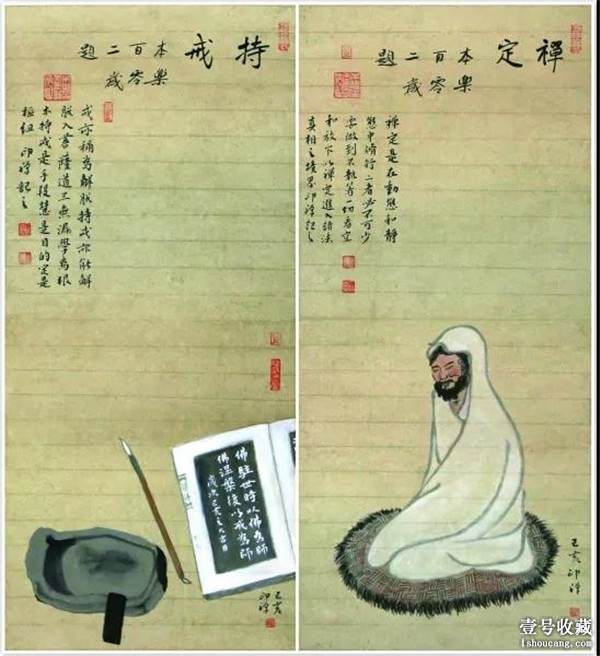 持戒
本樂
百零
二歲
題
戒亦稱為解脫持戒亦能解
脫入菩薩道三無漏學為根
本持戒是手段慧是目的定是
樞紐 印禪記之
佛駐世時以佛為師
佛涅槃後以戒為師
己亥
印禪
禪定
本樂
百零
二歲
題
禪定是在動態和靜
態中修行二者必不可少
要做到不執著一切看空
和放下以禪定進入諸法
真相之境界印禪記之
己亥印禪
壹号收藏
1shoucang.com